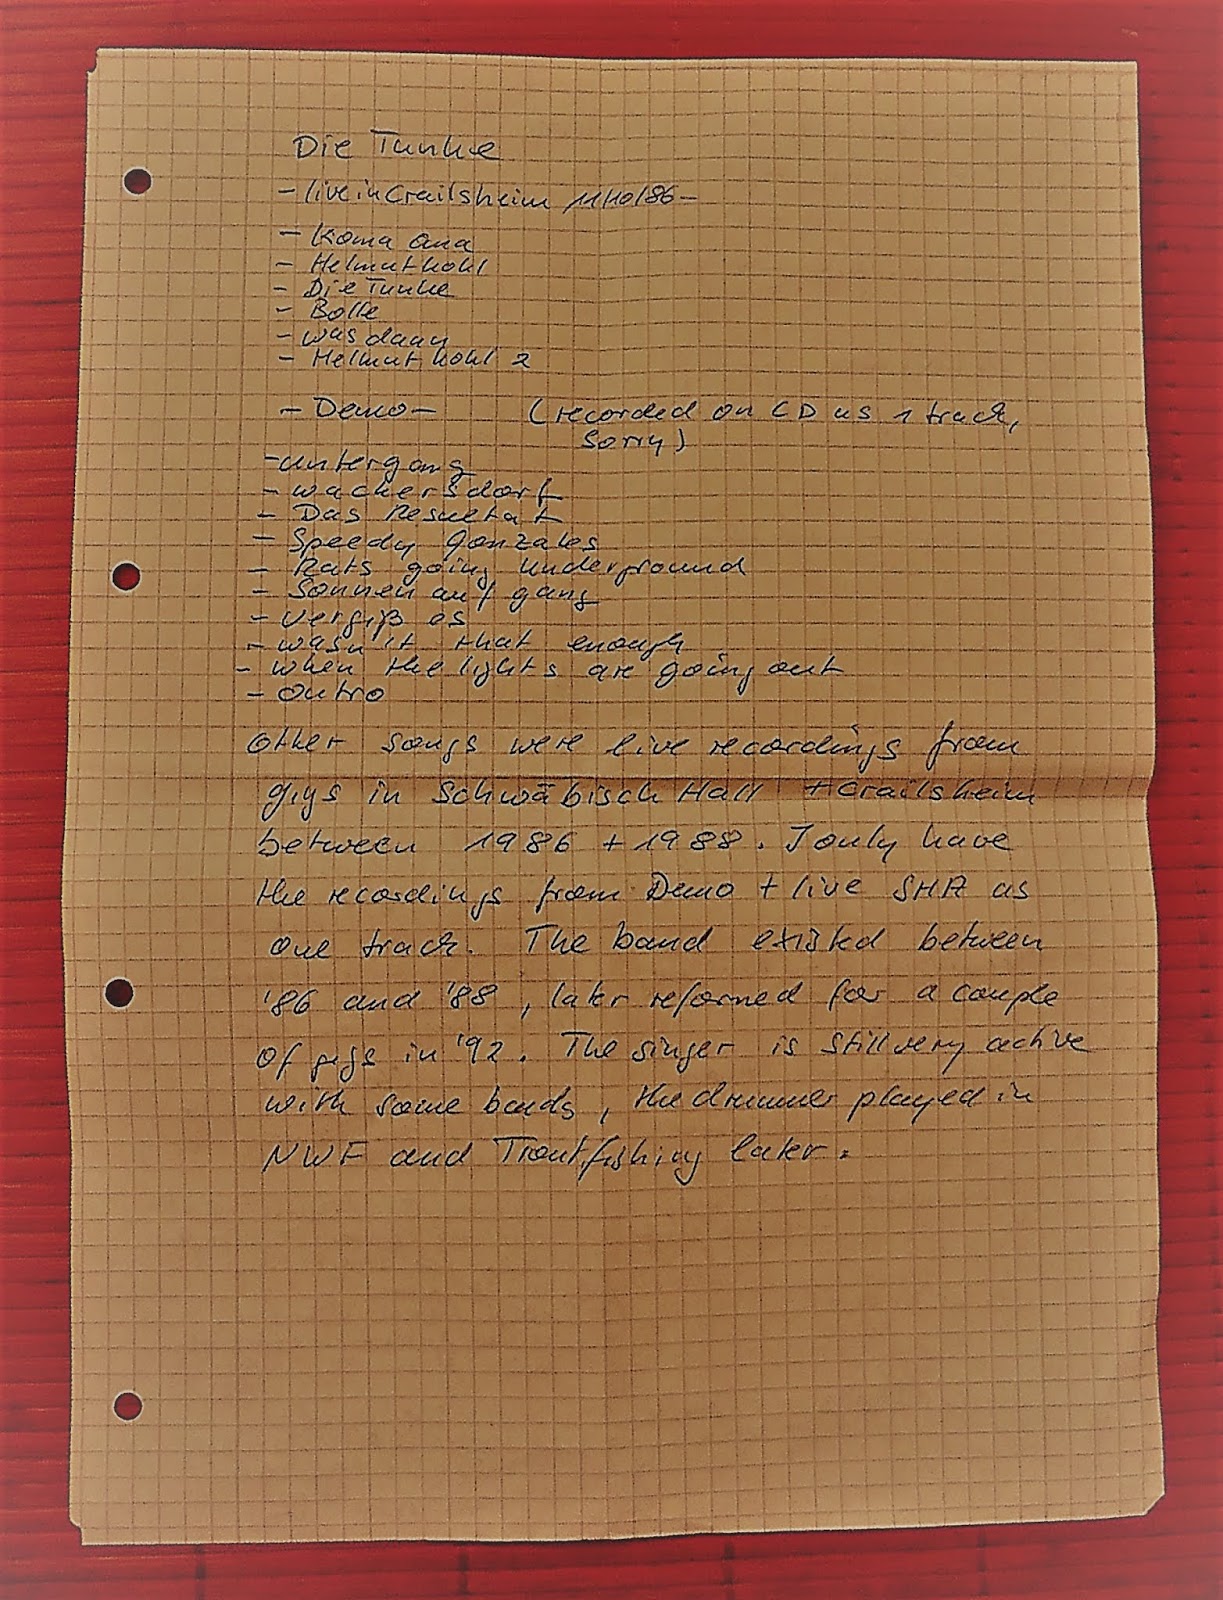 Die Tunke
- live in Crailsheim 11/10/86 -
- Koma ana
- Helmut Kohl
- Die Tunke
- Bolle
- was dann
- Helmut Kohl 2
- Demo - (recorded on CD as 1 track,
Sorry)
- Untergang
- Wackersdorf
- Das Resultat
- Speedy Gonzales
- Rats going Underground
- Sonnenaufgang
- Vergiß es
- wasn't that enough
- when the lights are going out
- Outro
Other songs were live recordings from
gigs in Schwäbisch Hall + Crailsheim
between 1986 + 1988. I only have
the recordings from Demo + live SHA as
one track. The band existed between
'86 and '88, later reformed for a couple
of gigs in '92. The singer is still very active
with some bands, the drummer played in
NWF and Troutfishing later.